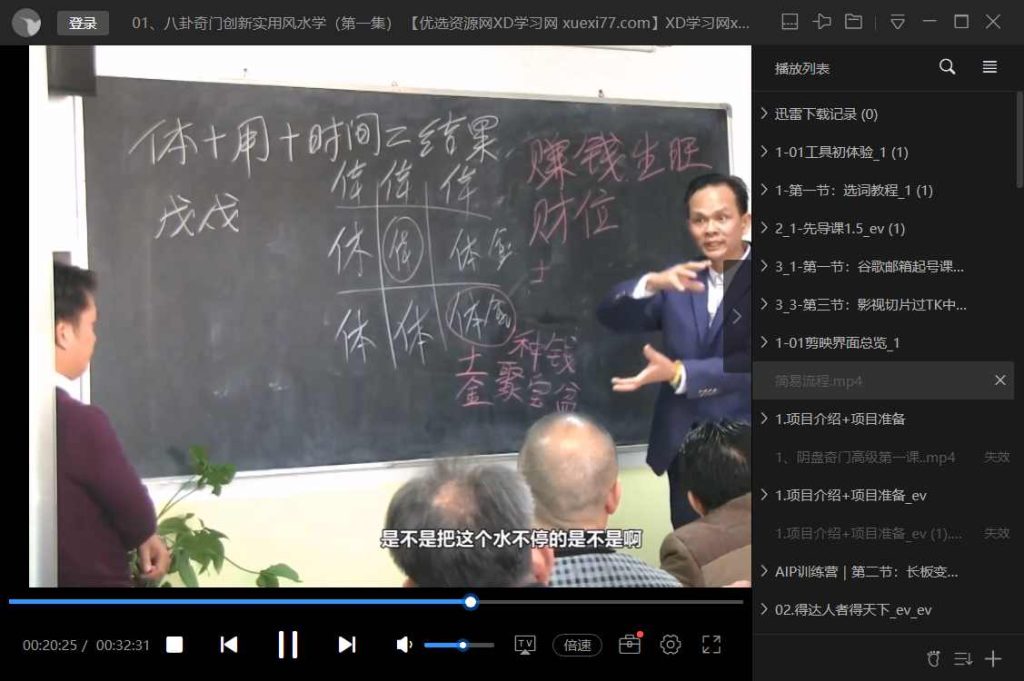 登录
01、八卦奇门创新实用风水学（第一集） 【优选资源网XD学习网 xuexi77.com】XD学习网x...
播放列表
迅雷下载记录 (0)
1-01工具初体验_1 (1)
1-第一节：选词教程_1 (1)
2_1-先导课1.5_ev (1)
3_1-第一节：谷歌邮箱起号课...
3_3-第三节：影视切片过TK中...
1-01剪映界面总览_1
简易流程.mp4
1.项目介绍+项目准备
1、阴盘奇门高级第一课..mp4 失效
1.项目介绍+项目准备_ev
1.项目介绍+项目准备_ev (1).... 失效
AIP训练营｜第二节：长板变...
02.得达人者得天下_ev_ev
体+用+时间=结果
赚钱生旺
财位
土
戊戌
休
体
体
体
土 种钱
金 聚宝盆
是不是把这个水不停的是不是啊
00:20:25 / 00:32:31
TV
倍速